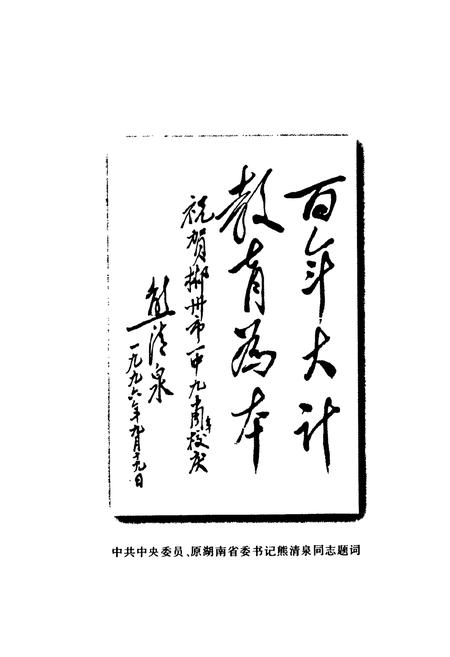 百年大计
教育为本
祝贺郴州市一中九十周年校庆
熊清泉
一九九六年九月十九日
中共中央委员、原湖南省委书记熊清泉同志题词